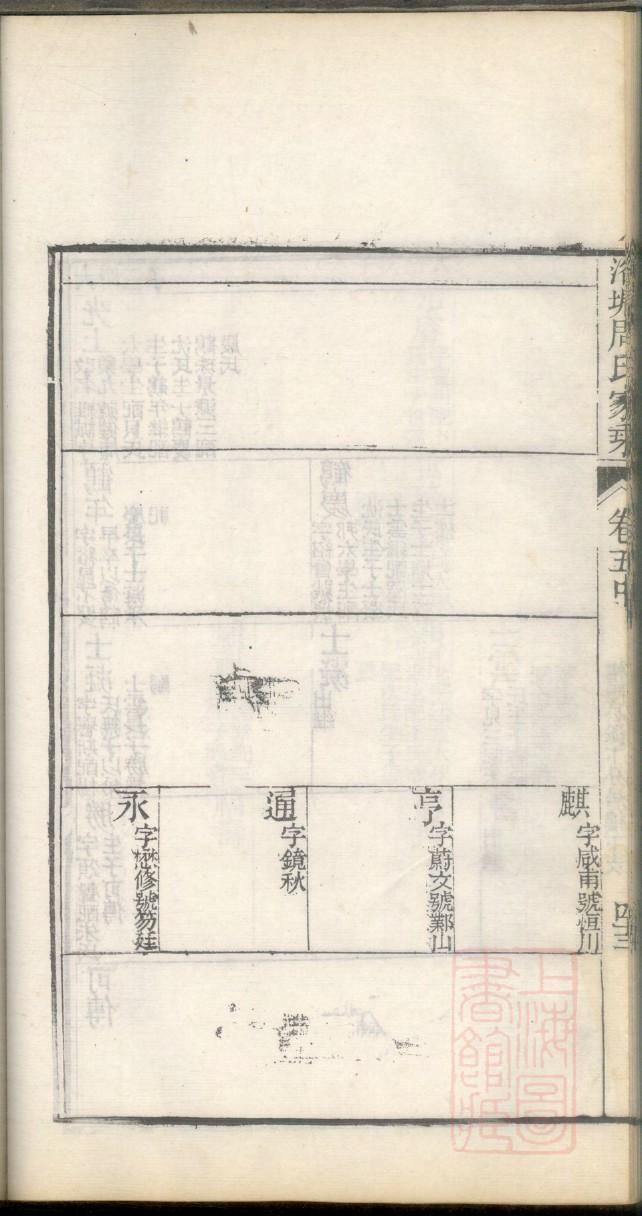 塘周氏家乘
卷五中
麒
字咸甫號恒川
亨
字蔚文號鄴山
通
字鏡秋
永
字懋修號笏廷
上海圖書館藏